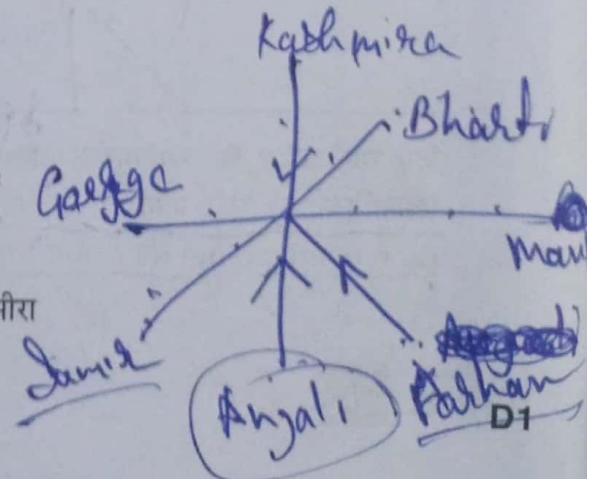 Kashmira
Bharti
Gargge
Man
मीरा
Samir
Anjali
Farhan
D1